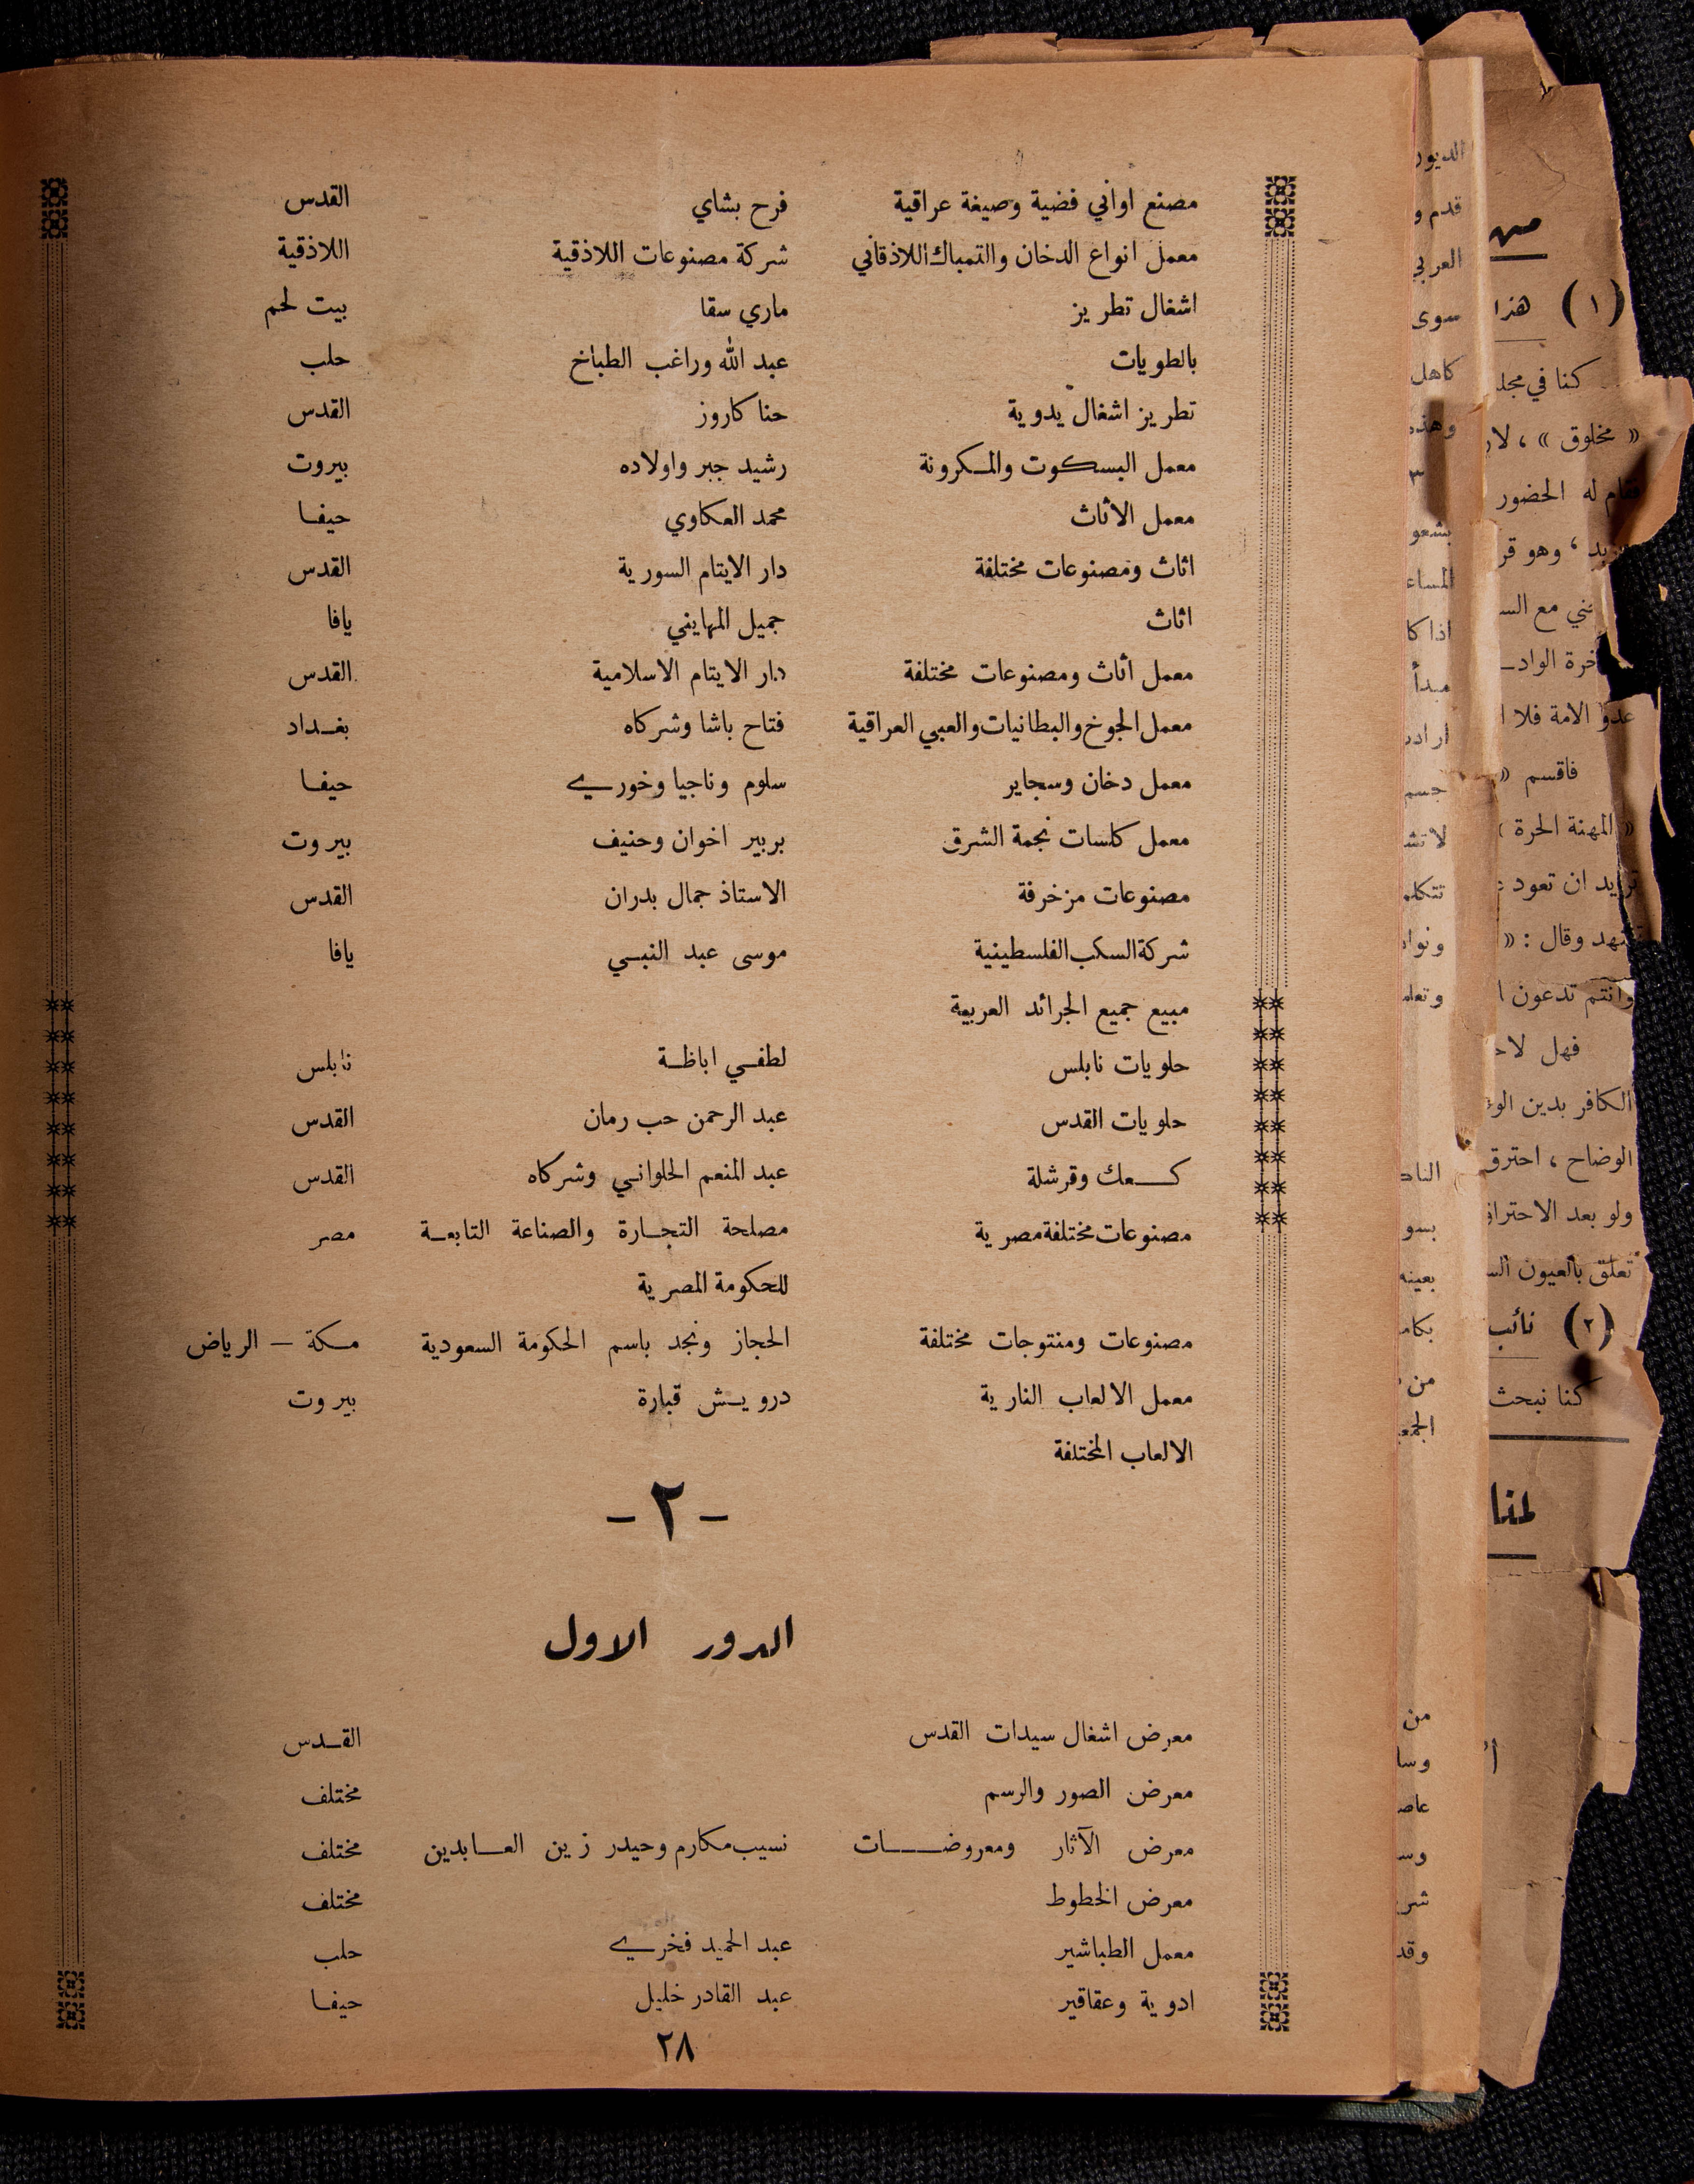 مصنع اواني فضية وصيغة عراقية فرح بشاي القدس
معمل انواع الدخان والتمباك اللاذقاني شركة مصنوعات اللاذقية اللاذقية
اشغال تطريز ماري سقا بيت لحم
بالطويات عبد الله وراغب الطباخ حلب
تطريز اشغال يدوية حنا كاروز القدس
معمل البسكوت والمكرونة رشيد جبر واولاده بيروت
معمل الاثاث محمد العكاوي حيفا
اثاث ومصنوعات مختلفة دار الايتام السورية القدس
اثاث جميل المهايني يافا
معمل أثاث ومصنوعات مختلفة دار الايتام الاسلامية القدس
معمل الجوخ والبطانيات والعبي العراقية فتاح باشا وشركاه بغداد
معمل دخان وسجاير سلوم وناجيا وخوري حيفا
معمل كلسات نجمة الشرق بربير اخوان وحنيف بيروت
مصنوعات مزخرفة الاستاذ جمال بدران القدس
شركة السكب الفلسطينية موسى عبد النبي يافا
مبيع جميع الجرائد العربية
حلويات نابلس لطفي اباظة نابلس
حلويات القدس عبد الرحمن حب رمان القدس
كعك وقرشلة عبد المنعم الحلواني وشركاه القدس
مصنوعات مختلفة مصرية مصلحة التجارة والصناعة التابعة مصر
للحكومة المصرية
مصنوعات ومنتوجات مختلفة الحجاز ونجد باسم الحكومة السعودية مكة — الرياض
معمل الالعاب النارية درويش قبارة بيروت
الالعاب المختلفة
- ٢ -
الدور الاول
معرض اشغال سيدات القدس القدس
معرض الصور والرسم مختلف
معرض الآثار ومعروضات نسيب مكارم وحيدر زين العابدين مختلف
معرض الخطوط مختلف
معمل الطباشير عبد الحميد فخري حلب
ادوية وعقاقير عبد القادر خليل حيفا
٢٨
من
(١) هذا
كنا في مجل
« مخلوق » ، لار
له الحضور
، وهو قر
مع الس
الامة فلا ا
فاقسم »
« المهنة الحرة »
تريد ان تعود
وقال : «
وانتم تدعون ا
فهل لاح
الكافر بدين الو
الوضاح ، احترق
ولو بعد الاحتراق
تعلق بالعيون الس
(٢) نائب
كنا نبحث